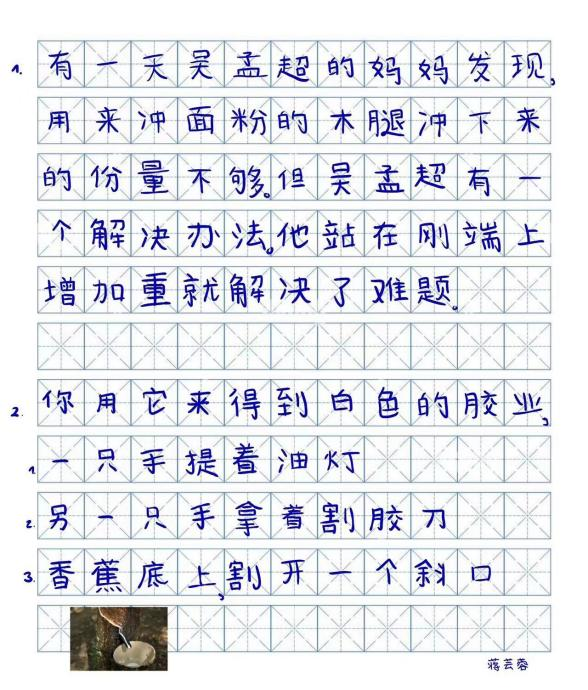 1. 有一天吴孟超的妈妈发现,
用来冲面粉的木腿冲下来
的份量不够。但吴孟超有一
个解决办法。他站在刚端上
增加重就解决了难题。
2. 你用它来得到白色的胶业,
1. 一只手提着油灯
2. 另一只手拿着割胶刀
3. 香蕉底上,割开一个斜口
蒋芸蓉